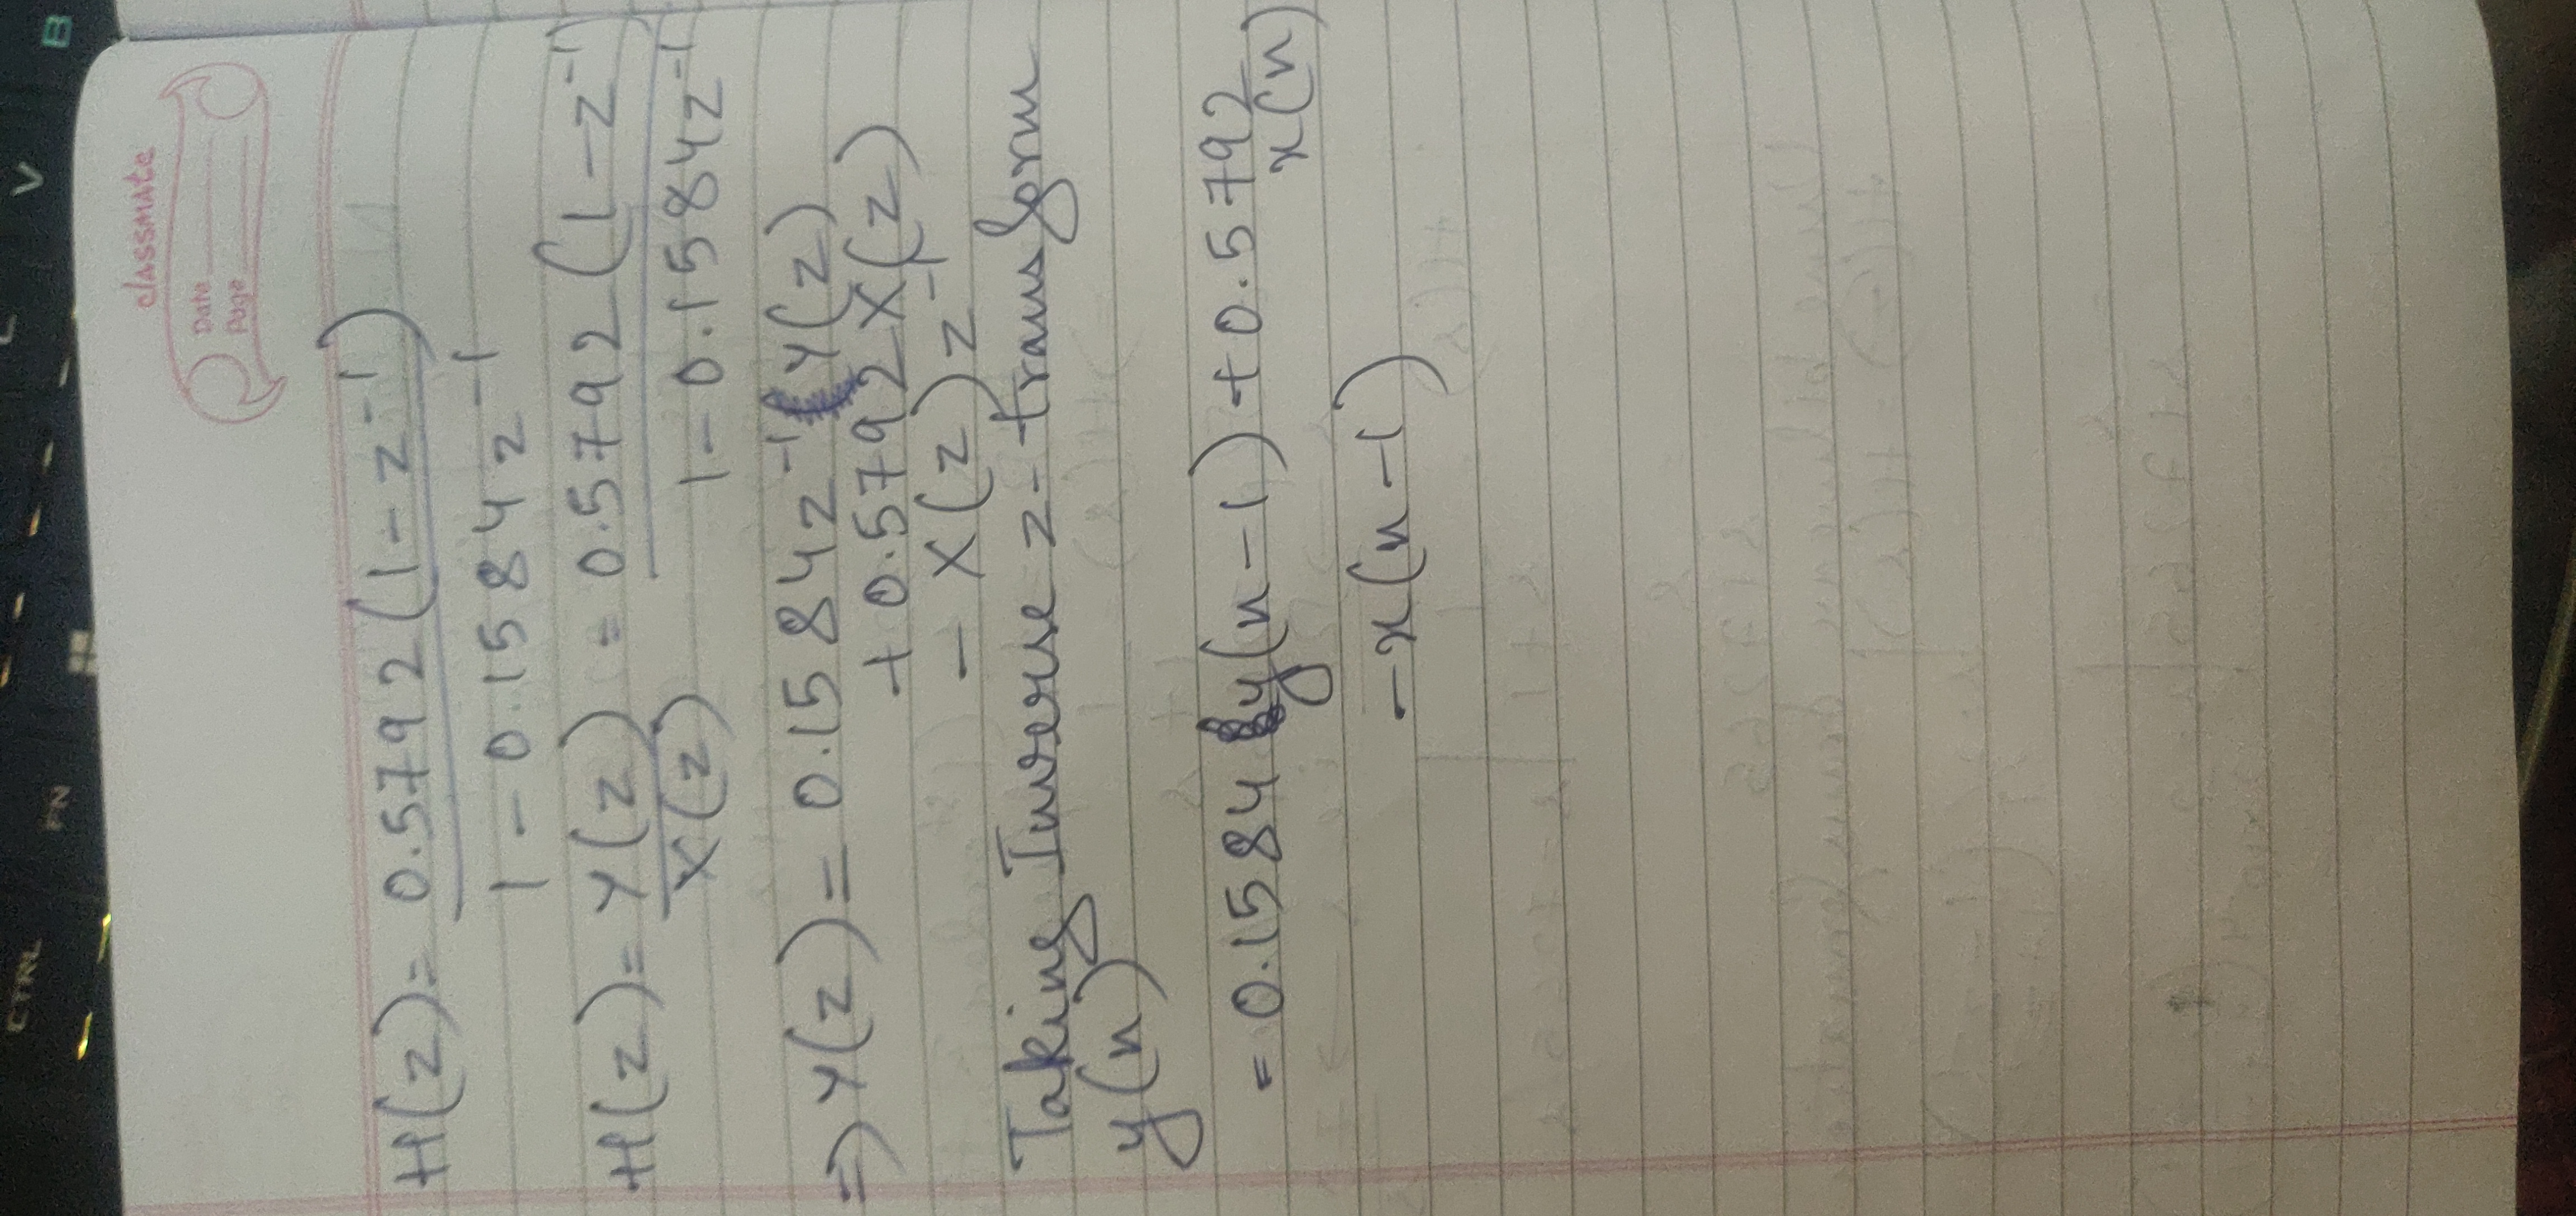 CTRL
FN
V
B
classmate
Date
Page
H(z) = 0.5792 (1 - z⁻¹)
1 - 0.1584 z⁻¹
H(z) = Y(z) = 0.5792 (1 - z⁻¹)
X(z) 1 - 0.1584z⁻¹
⇒ Y(z) = 0.1584z⁻¹ Y(z)
+ 0.5792 X(z)
- X(z) z⁻¹
Taking Inverse z-transform
y(n)
= 0.1584 y(n-1) + 0.5792
x(n)
- x(n-1)